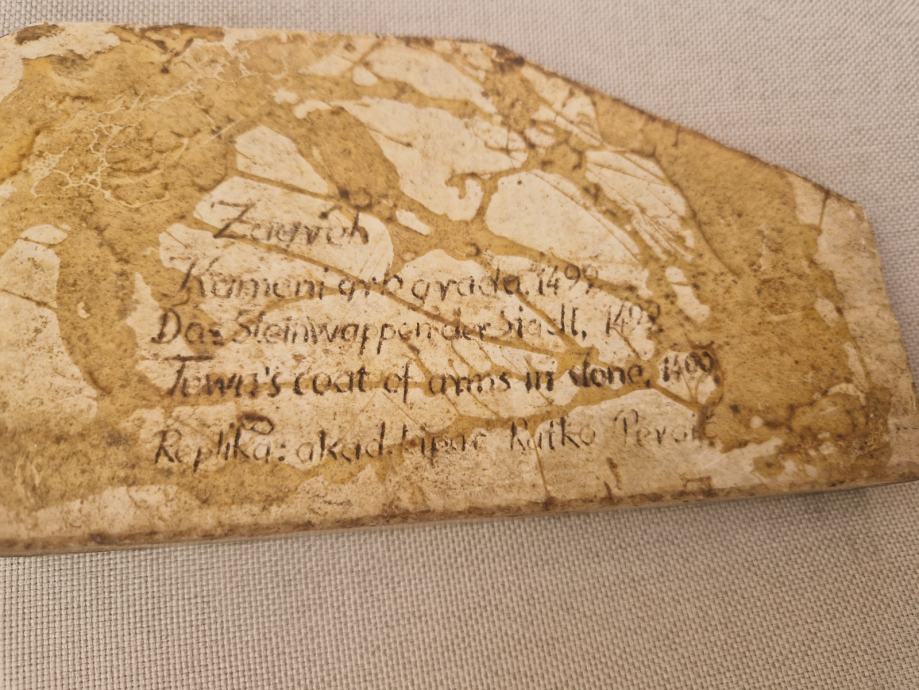 Zagreb
Kameni grb grada, 1499.
Das Steinwappen der Stadt, 1499.
Town's coat of arms in stone, 1499.
Replika: akad. kipar Ratko Petrić